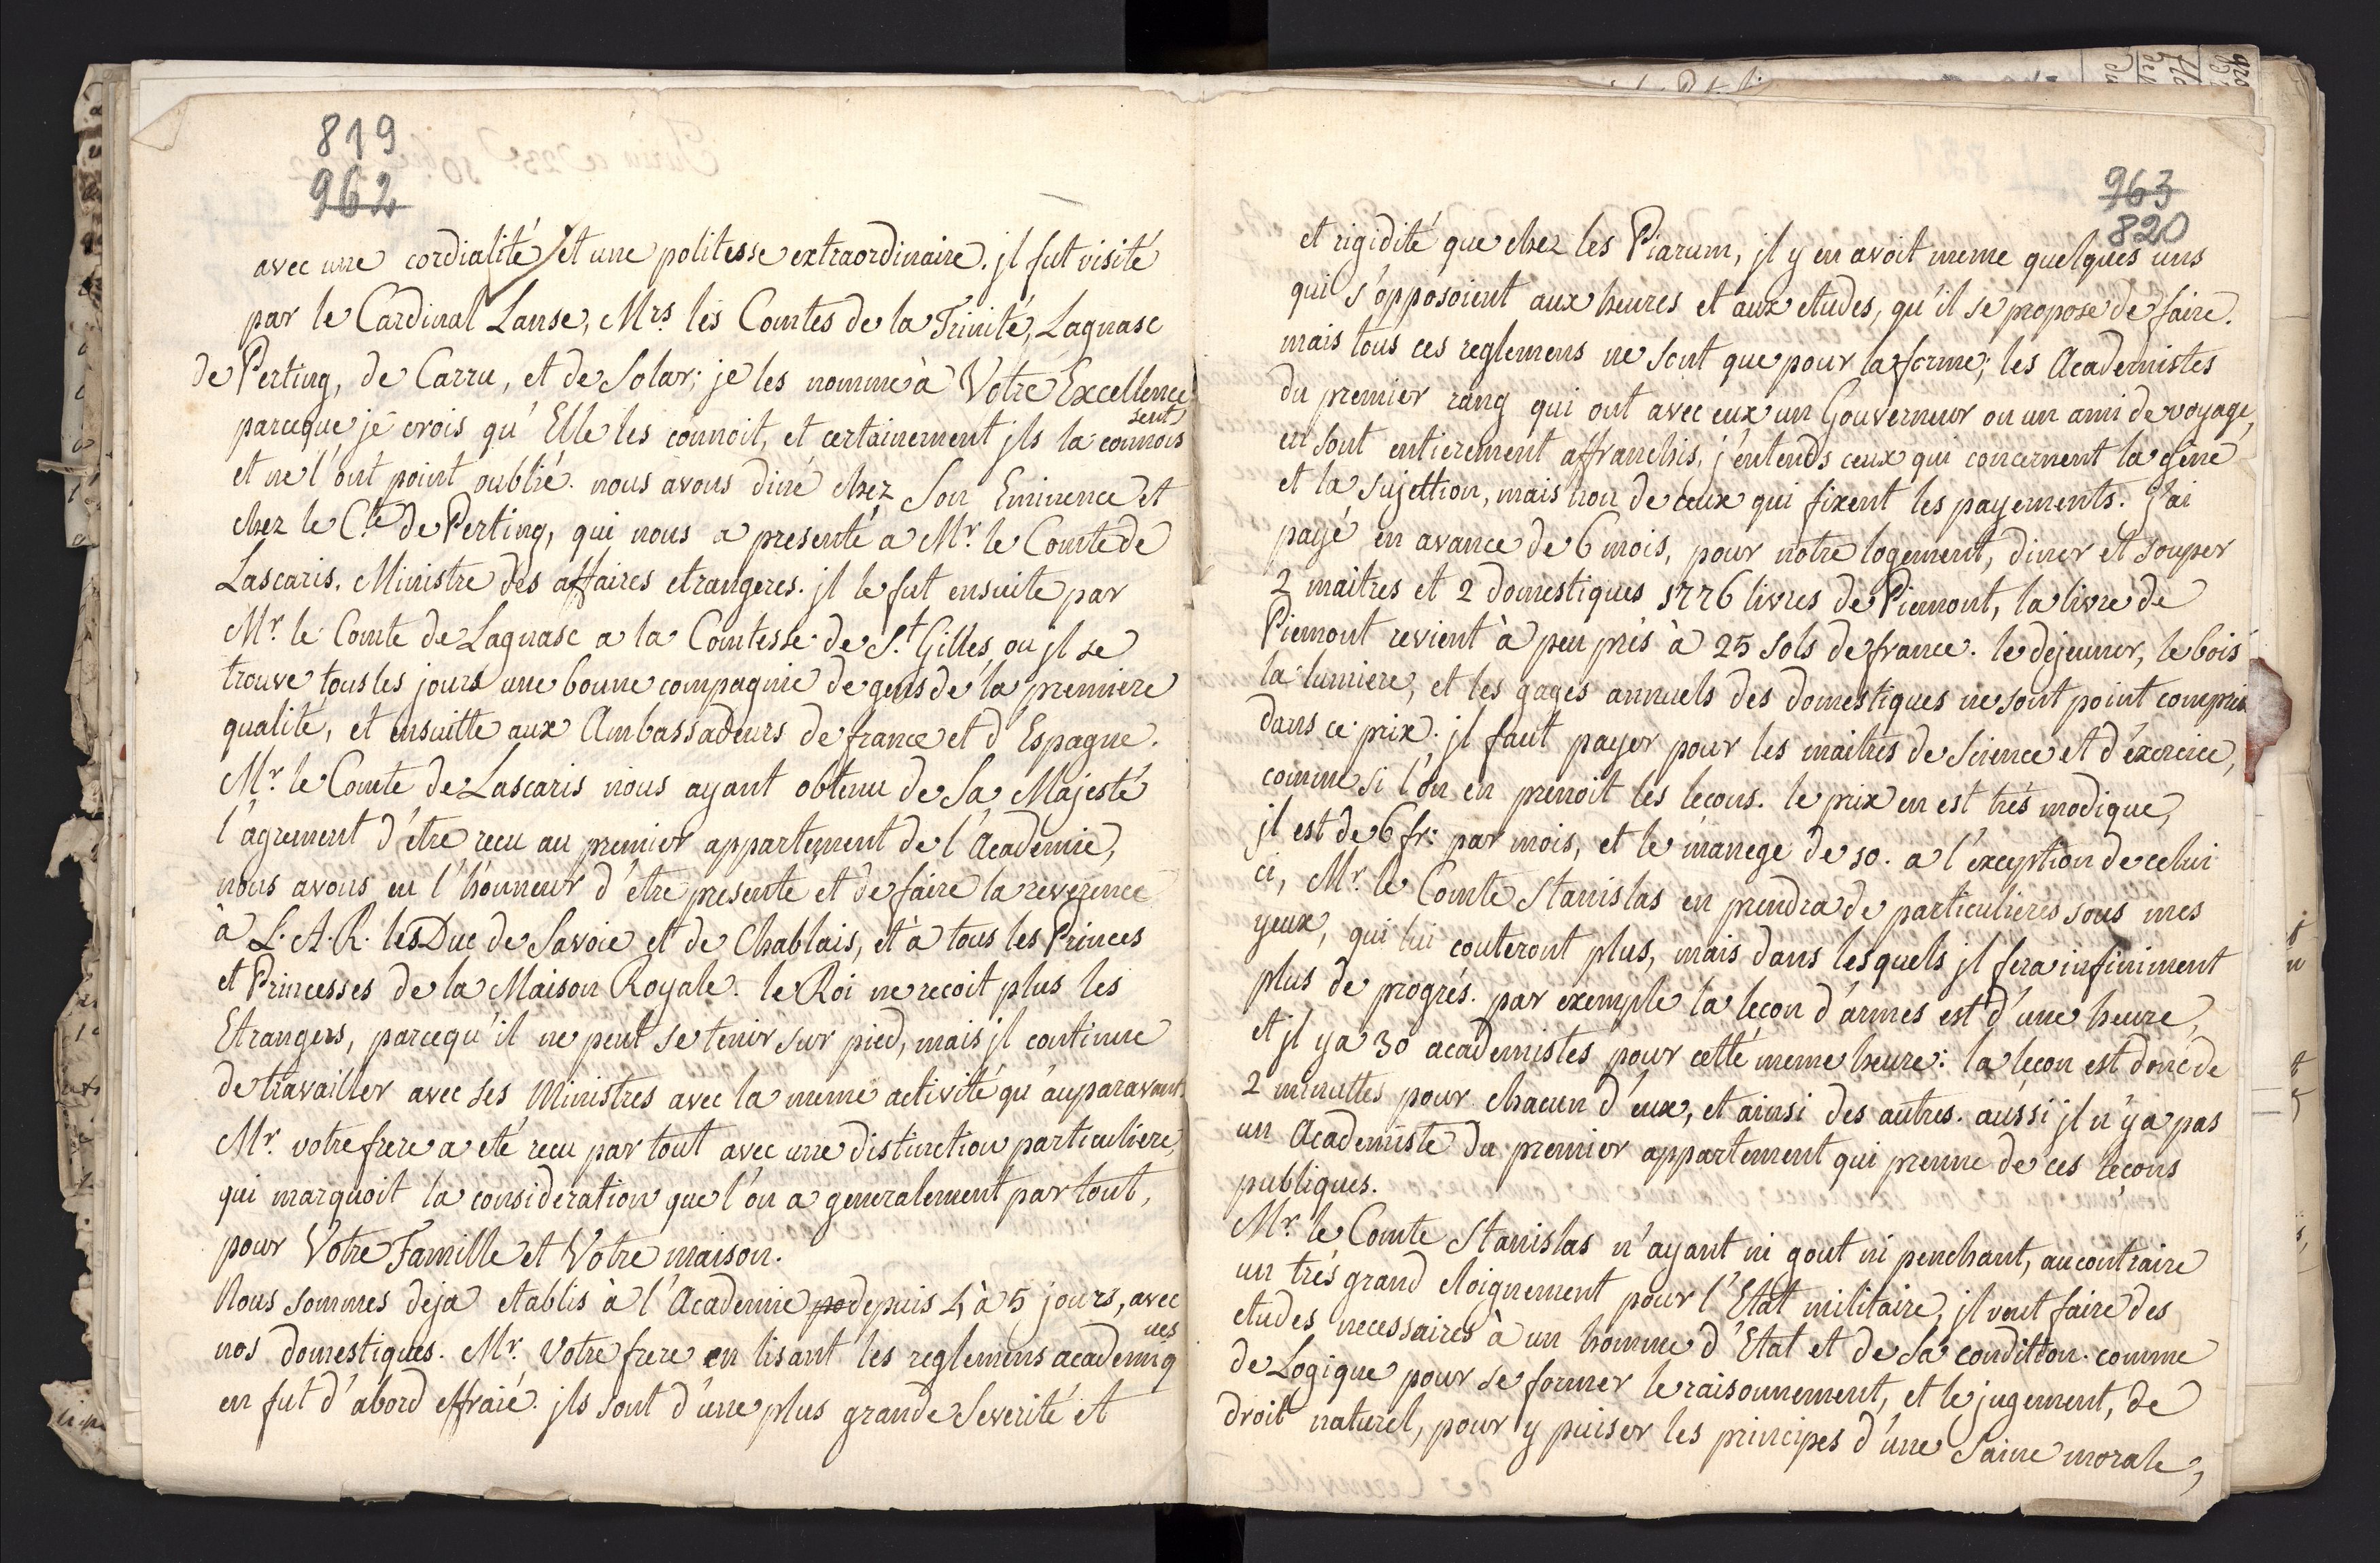 819
962
avec une cordialité et une politesse extraordinaire. jl fut visité
par le Cardinal Lanse, Mrs. les Comtes de la Trinité, Lagnasc
de Perting, de Carru, et de Solar; je les nomme à Votre Excellence
parceque je crois qu'Elle les connoit, et certainement jls la connois
sent
et ne l'ont point oublié. nous avons diné chez Son Eminence et
chez le Cte de Perting, qui nous a presenté a Mr. le Comte de
Lascaris. Ministre des affaires etrangeres. jl le fut ensuite par
Mr. le Comte de Lagnasc a la Comtesse de St. Gilles, ou jl se
trouve tous les jours une bonne compagnie de gens de la premiere
qualité, et ensuitte aux Ambassadeurs de france et d'Espagne.
Mr. le Comte de Lascaris nous ayant obtenu de Sa Majesté
l'agrement d'étre recu au premier appartement de l'Academie,
nous avons eu l'honneur d'étre presenté et de faire la reverence
à L. A. R. les Duc de Savoie et de Chablais, et à tous les Princes
et Princesses de la Maison Royale. le Roi ne recoit plus les
Etrangers, parcequ'il ne peut se tenir sur pied, mais jl continue
de travailler avec ses Ministres avec la meme activité qu'auparavant.
Mr. votre frere a eté recu par tout avec une distinction particuliere,
qui marquoit la consideration que l'on a generalement par tout,
pour Votre Famille et Votre maison.
Nous sommes deja etablis à l'Academie po depuis 4 à 5 jours, avec
nos domestiques. Mr. Votre frere en lisant les reglemens academiq
ues
en fut d'abord effraié. jls sont d'une plus grande Severité et
963
820
et rigidité que chez les Piarum, jl y en avoit meme quelques uns
qui s'opposoient aux heures et aux etudes, qu'il se propose de faire.
mais tous ces reglemens ne sont que pour la forme; les Academistes
du premier rang qui ont avec eux un Gouverneur ou un ami de voyage,
en sont entierement affranchis, j'entends ceux qui concernent la gêne
et la sujettion, mais non de ceux qui fixent les payements. J'ai
payé en avance de 6 mois, pour notre logement, diner et souper
2 maitres et 2 domestiques 1776 livres de Piemont, la livre de
Piemont revient à peu prés à 25 sols de france. le dejeuner, le bois
la lumiere, et les gages annuels des domestiques ne sont point compris
dans ce prix. jl faut payer pour les maitres de Science et d'éxercice,
comme si l'on en prenoit les lecons. le prix en est trés modique,
jl est de 6 fr: par mois, et le manege de 10. a l'exception de celui
ci, Mr. le Comte Stanislas en prendra de particulieres sous mes
yeux, qui lui couteront plus, mais dans lesquels jl fera infiniment
plus de progrés. par exemple la leçon d'armes est d'une heure,
et jl y a 30 academistes pour cette meme heure: la leçon est donc de
2 minuttes pour chacun d'eux, et ainsi des autres. aussi jl n'y a pas
un Academiste du premier appartement qui prenne de ces leçons
publiques.
Mr. le Comte Stanislas n'ayant ni gout ni penchant, au contraire
un trés grand eloignement pour l'Etat militaire, jl veut faire des
etudes necessaires à un homme d'Etat et de sa condition. comme
de Logique pour se former le raisonnement, et le jugement, de
droit naturel, pour y puiser les principes d'une Saine morale,